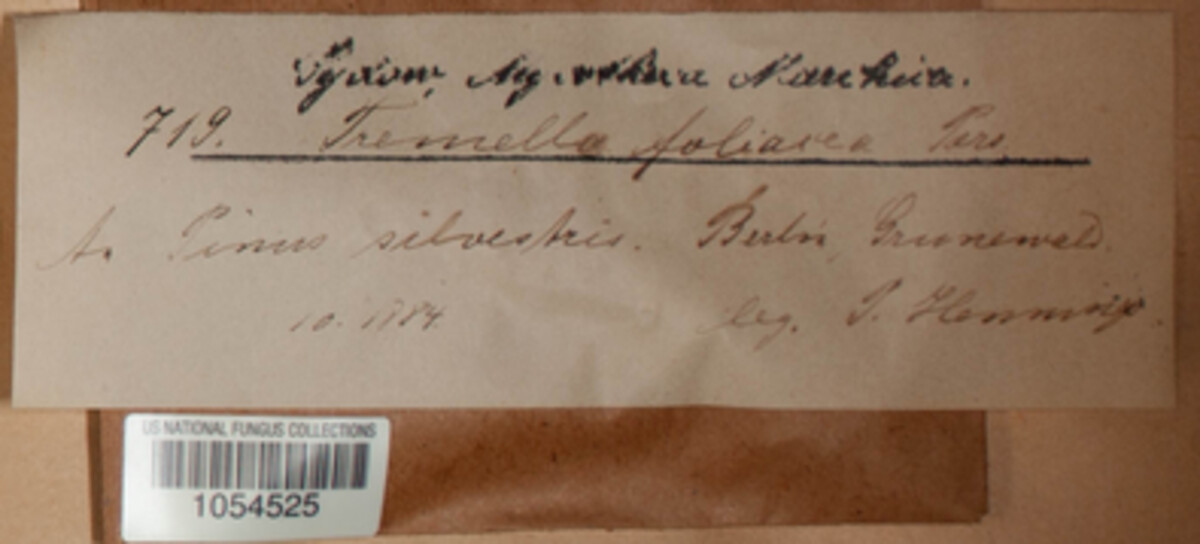 Sydow, Mycotheca Marchica.
719. Tremella foliacea Pers.
A. Pinus silvestris. Berlin, Grunewald.
10. 1884. leg. P. Hennings.
US NATIONAL FUNGUS COLLECTIONS
1054525